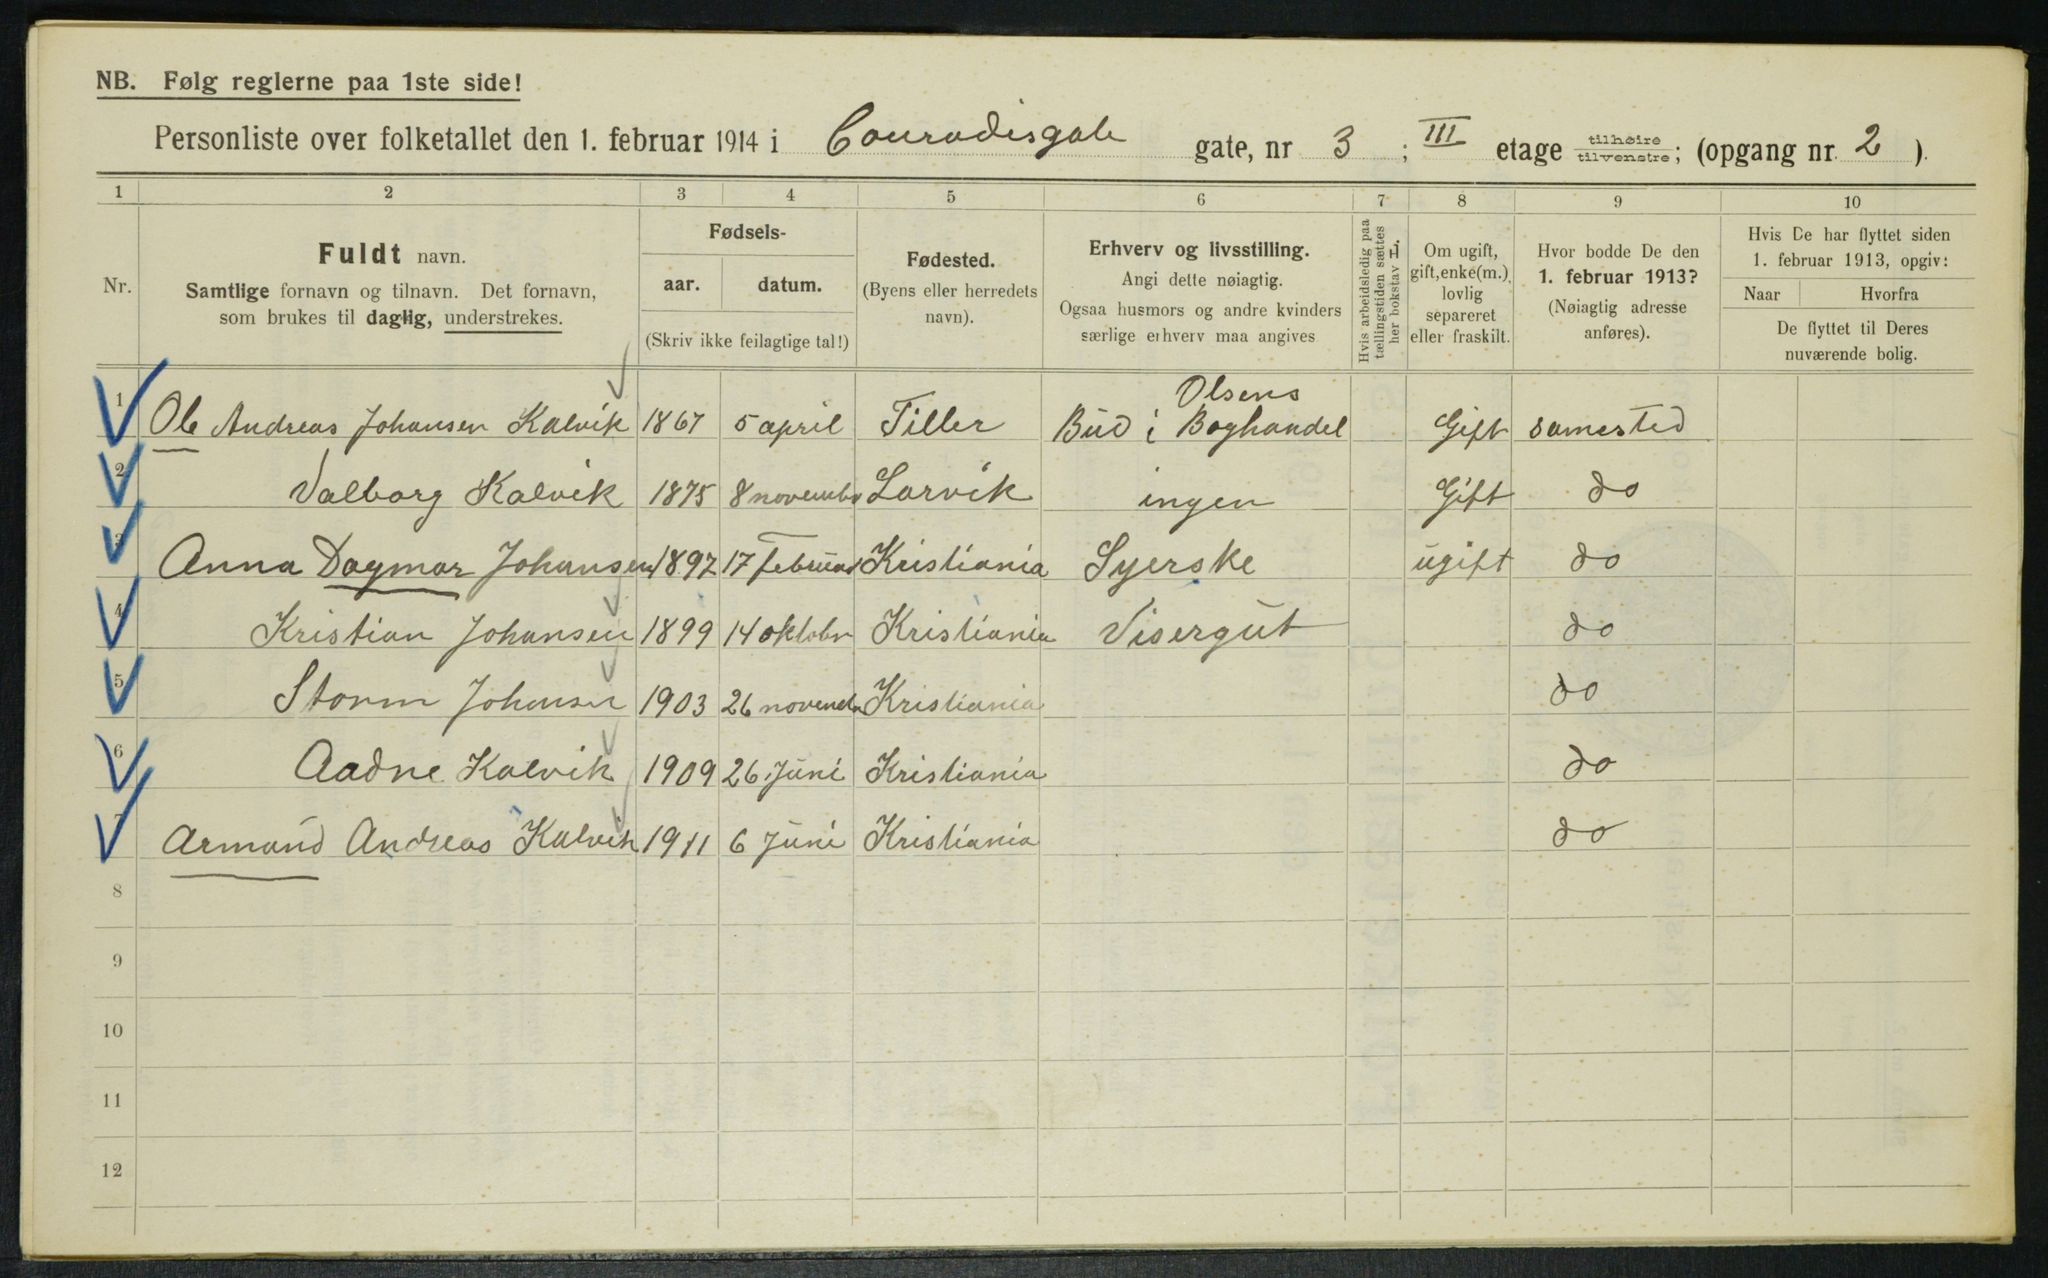 NB. Følg reglerne paa 1ste side!
Personliste over folketallet den 1. februar 1914 i Conradisgate gate, nr 3 ; III etage tilhøire tilvenstre; (opgang nr. 2 ).
1 2 3 4 5 6 7 8 9 10
Nr.
Fuldt navn.
Samtlige fornavn og tilnavn. Det fornavn,
som brukes til daglig, understrekes.
Fødsels-
aar. datum.
(Skriv ikke feilagtige tal!)
Fødested.
(Byens eller herredets
navn).
Erhverv og livsstilling.
Angi dette nøiagtig.
Ogsaa husmors og andre kvinders
særlige erhverv maa angives
Hvis arbeidsledig paa
tællingstiden sættes
her bokstav L.
Om ugift,
gift, enke(m.),
lovlig
separeret
eller fraskilt.
Hvor bodde De den
1. februar 1913?
(Nøiagtig adresse
anføres).
Hvis De har flyttet siden
1. februar 1913, opgiv:
Naar Hvorfra
De flyttet til Deres
nuværende bolig.
Olsens
1 Ole Andreas Johansen Kalvik 1867 5 april Tiller Bud i Boghandel Gift samested
2 Valborg Kalvik 1875 8 novembr Larvik ingen Gift do
3 Anna Dagmar Johansen 1897 17 februar Kristiania Syerske ugift do
4 Kristian Johansen 1899 14 oktobr Kristiania Visergut do
5 Storm Johansen 1903 26 novembr Kristiania do
6 Aadne Kalvik 1909 26 Juni Kristiania do
7 Armand Andreas Kalvik 1911 6 Juni Kristiania do
8
9
10
11
12